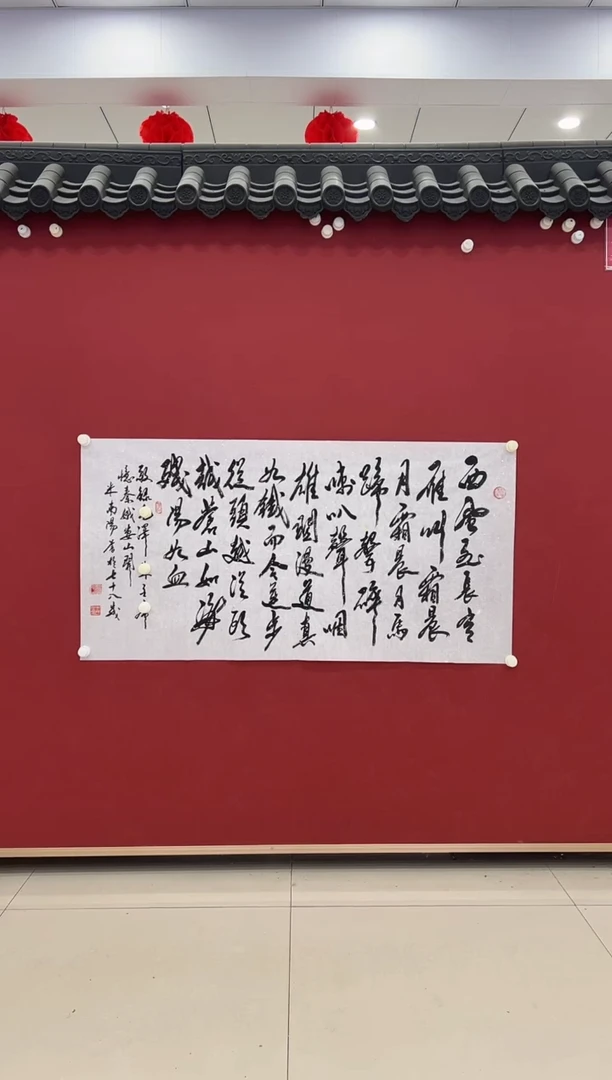 西風烈長空
雁叫霜晨
月霜晨月馬
蹄聲碎
喇叭聲咽
雄關漫道真
如鐵而今邁步
從頭越從頭
越蒼山如海
殘陽如血
敬錄毛澤
憶秦娥婁山關
南陽書於七十八歲